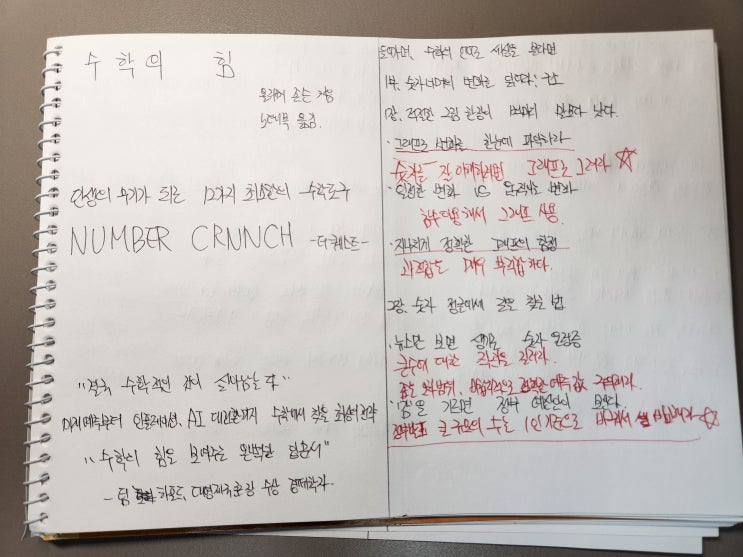 수학의 힘
올리버 존슨 지음
노태복 옮김.
인생의 무기가 되는 12가지 최소한의 수학도구
NUMBER CRUNCH -더퀘스트-
"결국 수학적인 것이 살아남는다"
미래예측부터 인플레이션, AI 대전환까지 수학에서 찾은 최상의 전략
"수학의 힘을 보여주는 완벽한 입문서"
- 팀 하포드, 대영제국훈장 수상 경제학자.
들어가며, 수학의 눈으로 세상을 본다면
1부. 숫자 너머의 변화를 읽다: 구조
1장. 적절한 그림 한장이 백마디 말보다 낫다.
· 그래프로 변화를 한눈에 파악하라
숫자를 잘 이해하려면 그래프로 그려라 ☆
· 일정한 변화 VS 급격한 변화
함수 이용해서 그래프 사용.
· 지나치게 정확한 그래프의 함정
과적합은 매우 부적합하다.
2장. 숫자 정글에서 길을 찾는 법
· 뉴스만 보면 생기는 숫자 울렁증
큰수에 대한 감각을 길러라.
· 감을 기르면 정부 예산안이 보인다.
큰 규모의 수는 1인 기준으로 바꿔서 ☆